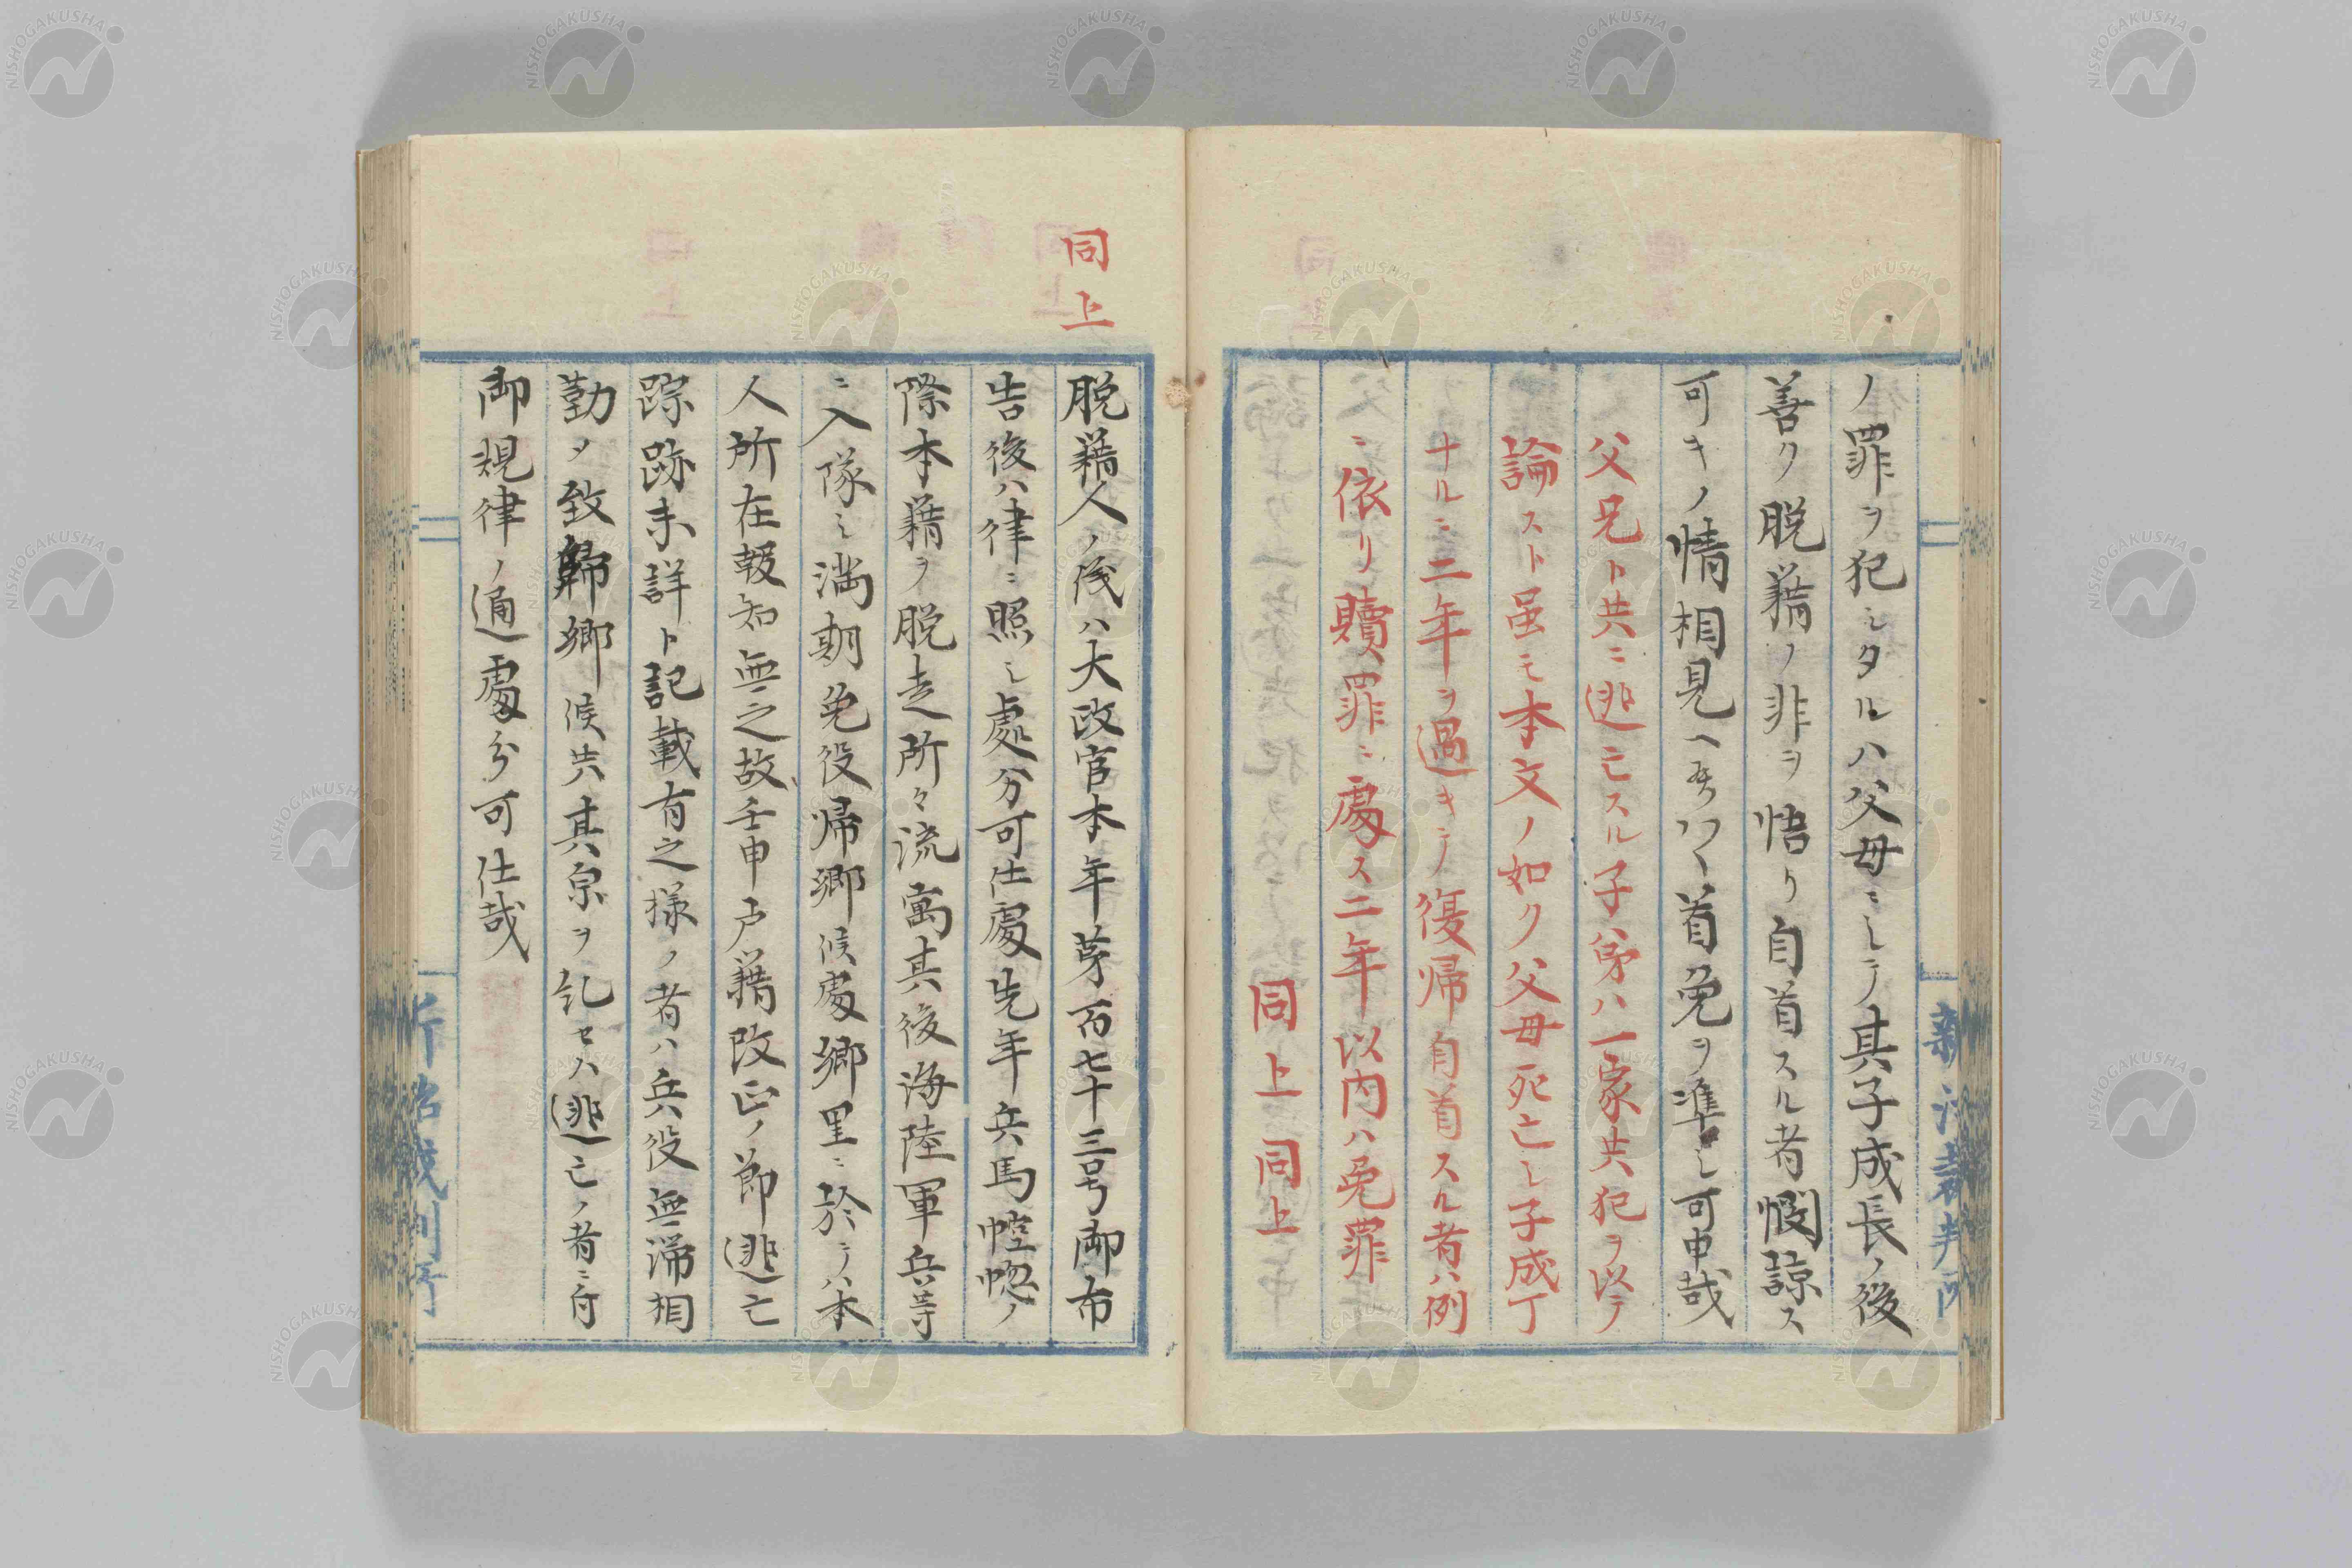 ノ罪ヲ犯シタルハ父母ニシテ其子成長ノ後
善ク脱籍ノ非ヲ悟リ自首スル者憫諒ス
可キノ情相見ヘ首免ヲ準シ可申哉
父兄ト共ニ逃亡スル子弟ハ一家共犯ヲ以テ
論スト虽モ本文ノ如ク父母死亡シ子成丁
ナルニ二年ヲ過キテ復帰自首スル者ハ例
ニ依リ贖罪ニ處ス二年以内ハ免罪
同上同上
同上
脱籍人ノ儀ハ大政官本年第百七十三号御布
告後ハ律ニ照シ處分可仕處先年兵馬悾惚ノ
際本籍ヲ脱走所々流寓其後海陸軍兵等
ニ入隊シ満期免役帰郷候處郷里ニ於テハ本
人所在報知無之故壬申戸籍改正ノ節逃亡
踪跡未詳ト記載有之様ノ者ハ兵役無滞相
勤タ致歸郷候共其原ヲ糺セハ逃亡ノ者ニ付
御規律ノ通處分可仕哉